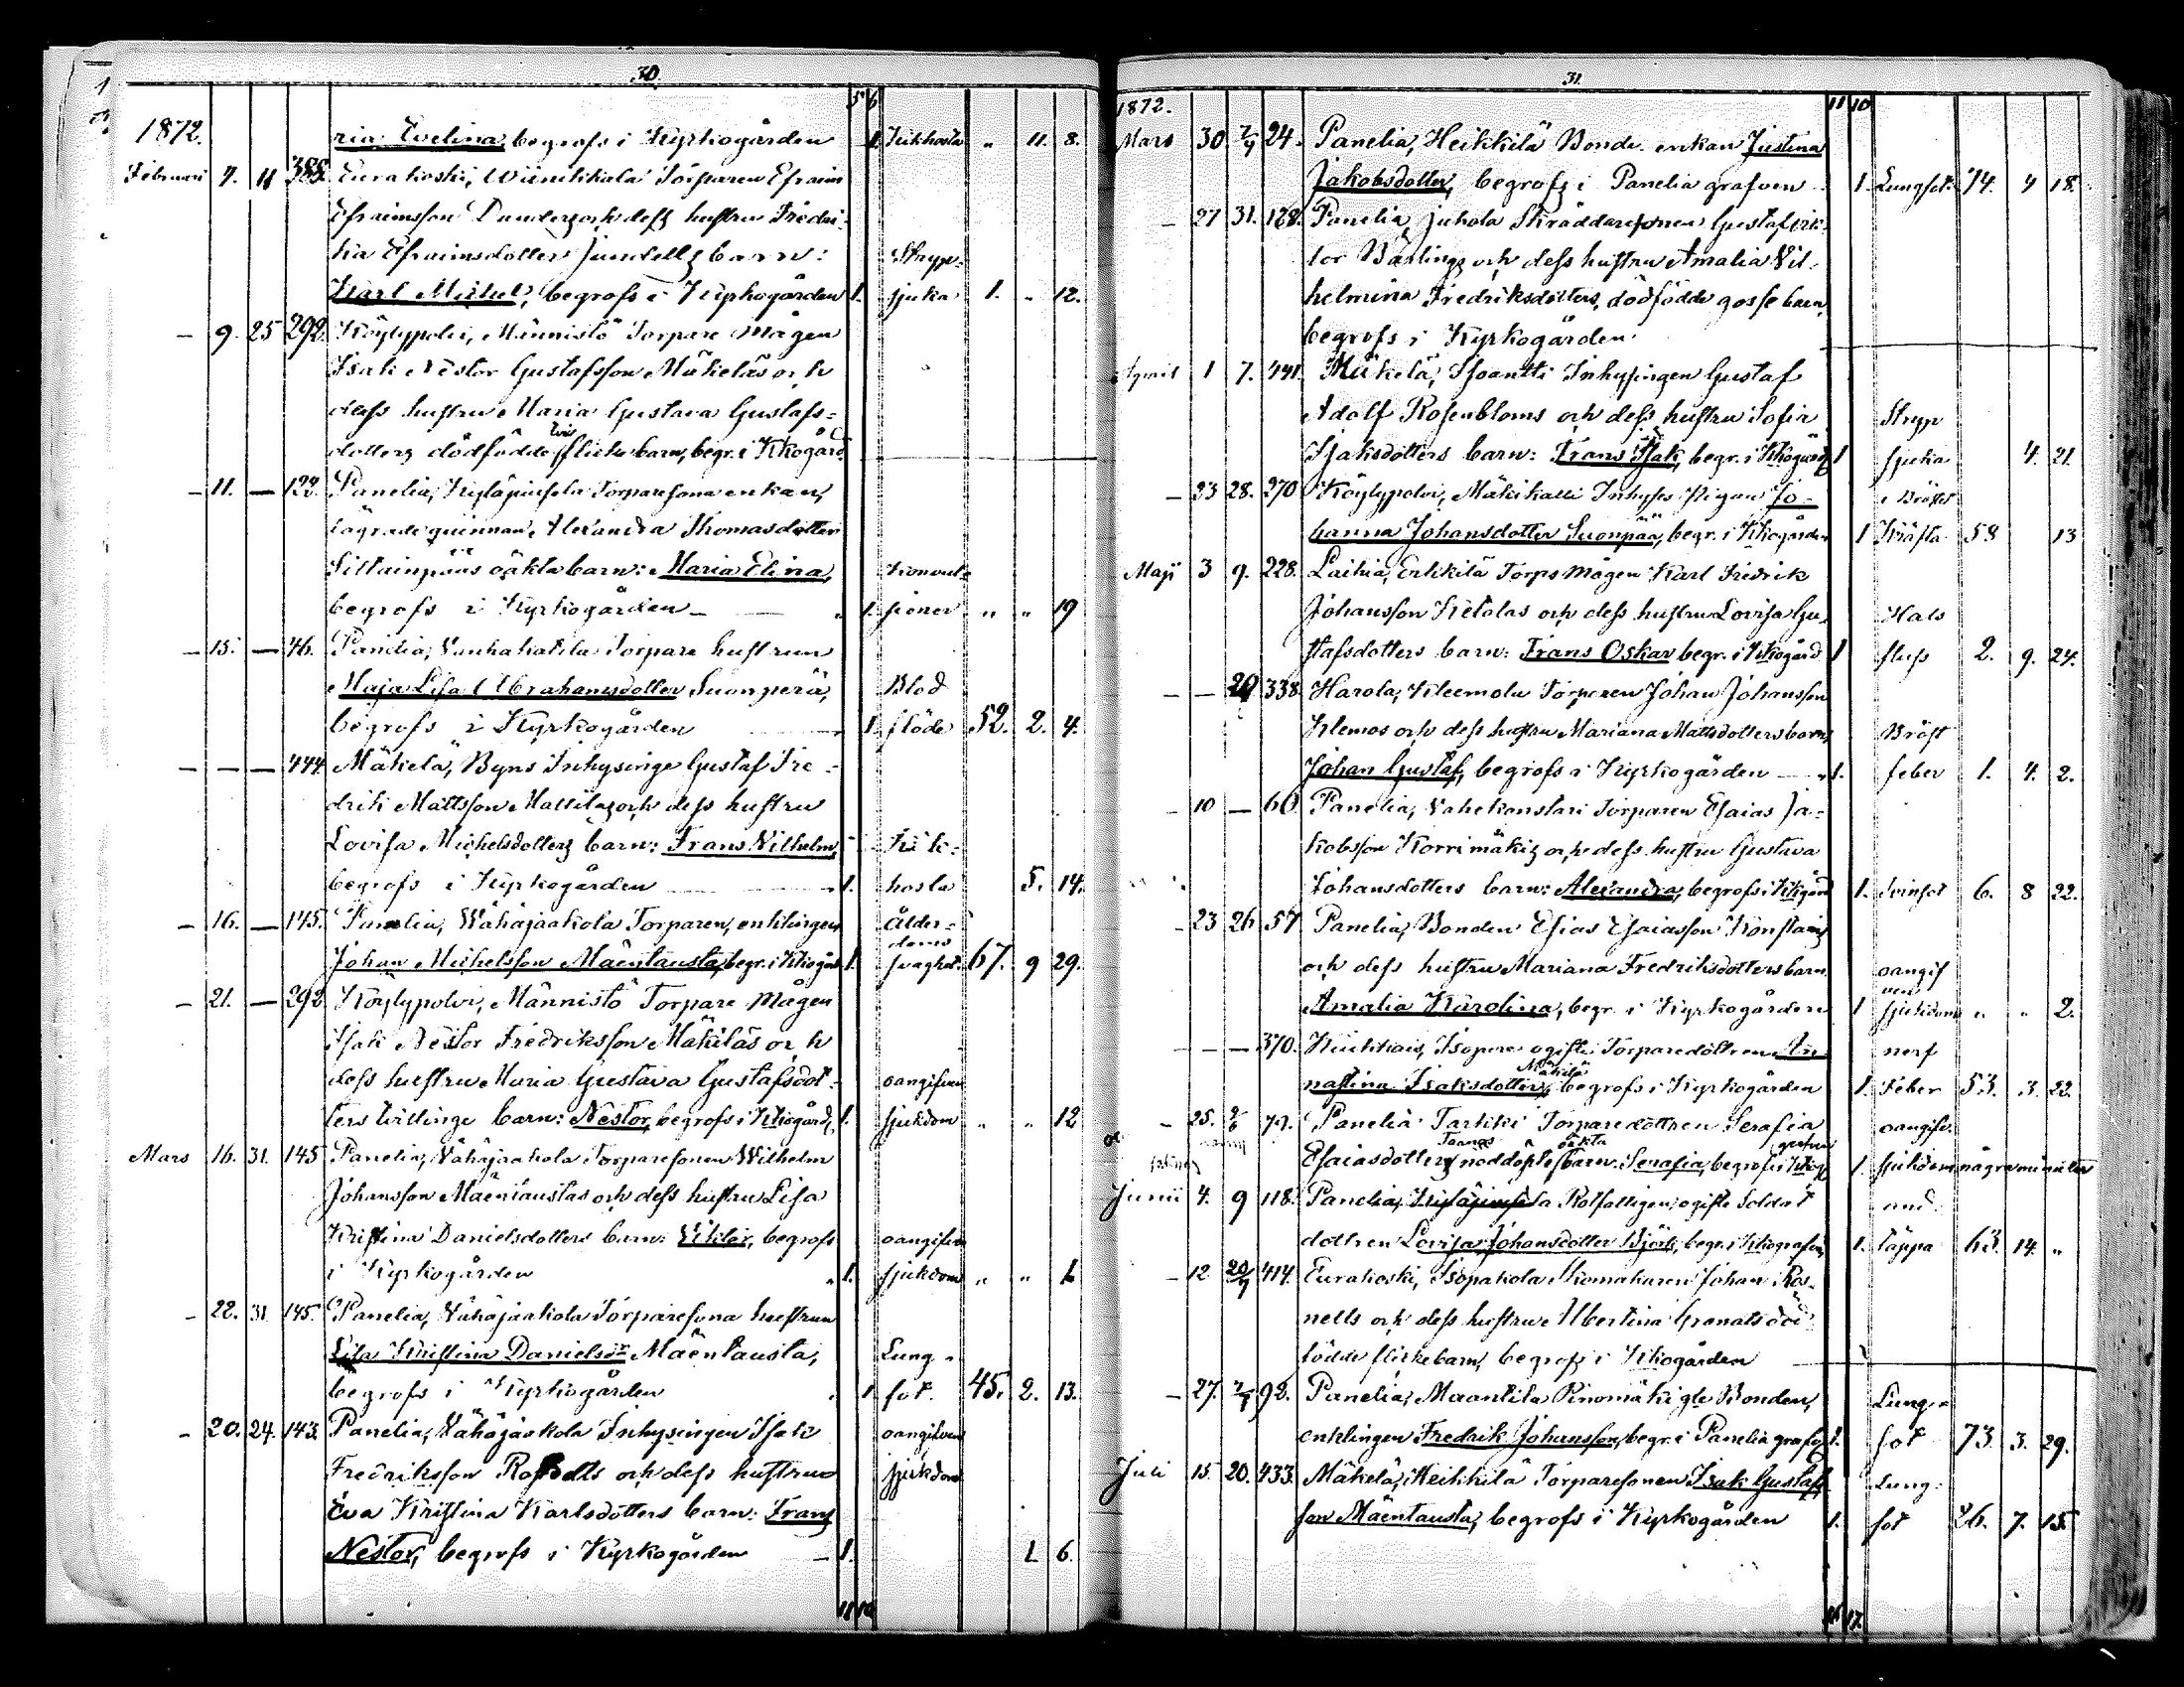 30.
5 6
1872. ria Evelina, begrofs i Kyrkogården 1 Kikhosta " 11. 8.
Februari 7. 11 388. Eurakoski, Torparen Efraim
Efraimsson och dess hustru Fredri-
ka Efraimsdotter barn: Stryp-
Karl Mickel, begrofs i Kyrkogården 1. sjuka 1. " 12.
— 9. 25 292. Köylypolvi, Männistö Torpare mågen
Isak Nestor Gustafsson Mäkeläs och
dess hustru Maria Gustava Gustafs-
dotters dödfödde flickebarn, begr. i Kkogård
— 11. — 122. Panelia, Torparesona enkan,
qvinnan, Alexandra Thomasdotter
oäkta barn: Maria Elina, Konvul-
begrofs i Kyrkogården — 1. sioner " " 19
— 15. — 46. Panelia, Torpare hustrun
Maja Lisa Abrahamsdotter Suonperä, Blod
begrofs i Kyrkogården 1. flöde 52. 2. 4.
— — — 444 Mäkelä, Byns Inhysinge Gustaf Fre-
drik Mattsson Mattilas och dess hustru
Lovisa Michelsdotters barn: Frans Vilhelm, Kik-
begrofs i Kyrkogården 1. hosta 5. 14.
— 16. — 145. Panelia, Wähäjaakola Torparen, enklingen Ålder-
doms
Johan Michelsson Mäentausta, begr. i Kkogård 1. svaghet. 67. 9 29.
— 21. — 292 Köylypolvi, Männistö Torpare Mågen
Isak Nestor Fredriksson Mäkiläs och
dess hustru Maria Gustava Gustafsdot- oangifven
ters tvillinge barn: Nestor, begrofs i Kkogård, 1. sjukdom " " 12
Mars 16. 31. 145 Panelia, Vähäjaakola Torparesonen Wilhelm
Johansson Mäentaustas och dess hustru Lisa
Kristina Danielsdotters barn: Viktor, begrofs oangifven
i Kyrkogården 1. sjukdom " " 1
— 22. 31. 145. Panelia, Vähäjaakola Torparesona hustrun
Lisa Kristina Danielsdr Mäentausta, Lung-
begrofs i Kyrkogården 1. sot. 45. 2. 13.
— 20. 24. 143. Panelia, Vähäjaakola Inhysingen Isak oangifven
Fredriksson och dess hustru sjukdom
Eva Kristina Karlsdotters barn: Frans
Nestor, begrofs i Kyrkogården — 1. 1 6.
11 10
31.
1872. 11 10
Mars 30 7/4 24. Panelia, Heikkilä Bonde enkan Justina
Jakobsdotter, begrofs i Panelia grafven 1. Lungsot. 74. 4 18.
— 27 31. 128. Panelia, Juhola Skräddaresonen Gustaf Vik-
tor och dess hustru Amalia Vil-
helmina Fredriksdotters, dödfödde gosse barn,
begrofs i Kyrkogården
April 1 7. 441. Mäkelä, Inhysingen Gustaf
Adolf Rosenbloms och dess hustru Sofia Stryp
Isaksdotters barn: Frans Isak, begr. i Kkogård 1 sjuka 4. 21.
— 23 28. 270 Köylypolvi, Mäkikalli Inhyses Pigan Jo- i Bröstet
hanna Johansdotter Suonpää, begr. i Kkogården 1 Kräfta 58 13
Maji 3 9. 228. Laihia, Erkkilä Torps mågen Karl Fredrik
Johansson Ketolas och dess hustru Lovisa Gu- Hals
stafsdotters barn: Frans Oskar begr. i Kkogård 1 fluss 2. 9. 24.
— — 338 Harola, Kleemola Torparen Johan Johansson
Klemos och dess hustru Mariana Mattsdotters barn, Bröst
Johan Gustaf, begrofs i Kyrkogården 1. feber 1. 4. 2.
— 10 — 60. Panelia, Torparen Esaias Ja-
kobsson Korrimäkis och dess hustru Gustava
Johansdotters barn: Alexandra, begrofs i Kkgård 1. 6. 8 22.
— 23 26 57 Panelia, Bonden Esias Esaiasson
och dess hustru Mariana Fredriksdotters barn oangif
ven
Amalia Karolina, begr. i Kyrkogården 1 sjukdom " " 2.
— — — 370. Kiukkais, ogifta Torparedottren An nerf
Mäkilä
nastina Isaksdotter, begrofs i Kyrkogården 1. Feber 53. 3. 22.
— 25. 79. Panelia Tarkki Torparedottren Serafia oangifv.
oäkta
Esaiasdotters nöddöpte barn: Serafia, begrofs i 1. sjukdom några minuter
Junii 4. 9 118. Panelia, Rotfattigen, ogifta Soldat and
dottren Lovisa Johansdotter Björk, begr. i Kkografven 1. täppa 63. 14. "
— 12 414. Eurakoski, Isopakola Skomakaren Johan Ros-
nells och dess hustru Albertina Granats död
födde flickebarn, begrofs i Kkogården
— 27. 92. Panelia, Maantila Bonden, Lung-
enklingen Fredrik Johansson, begr. i Panelia graf 1. sot 73. 3. 29.
Juli 15. 20. 433. Mäkelä, Heikkilä Torparesonen Isak Gustafs Lung-
son Mäentausta, begrofs i Kyrkogården 1. sot 26. 7. 15.